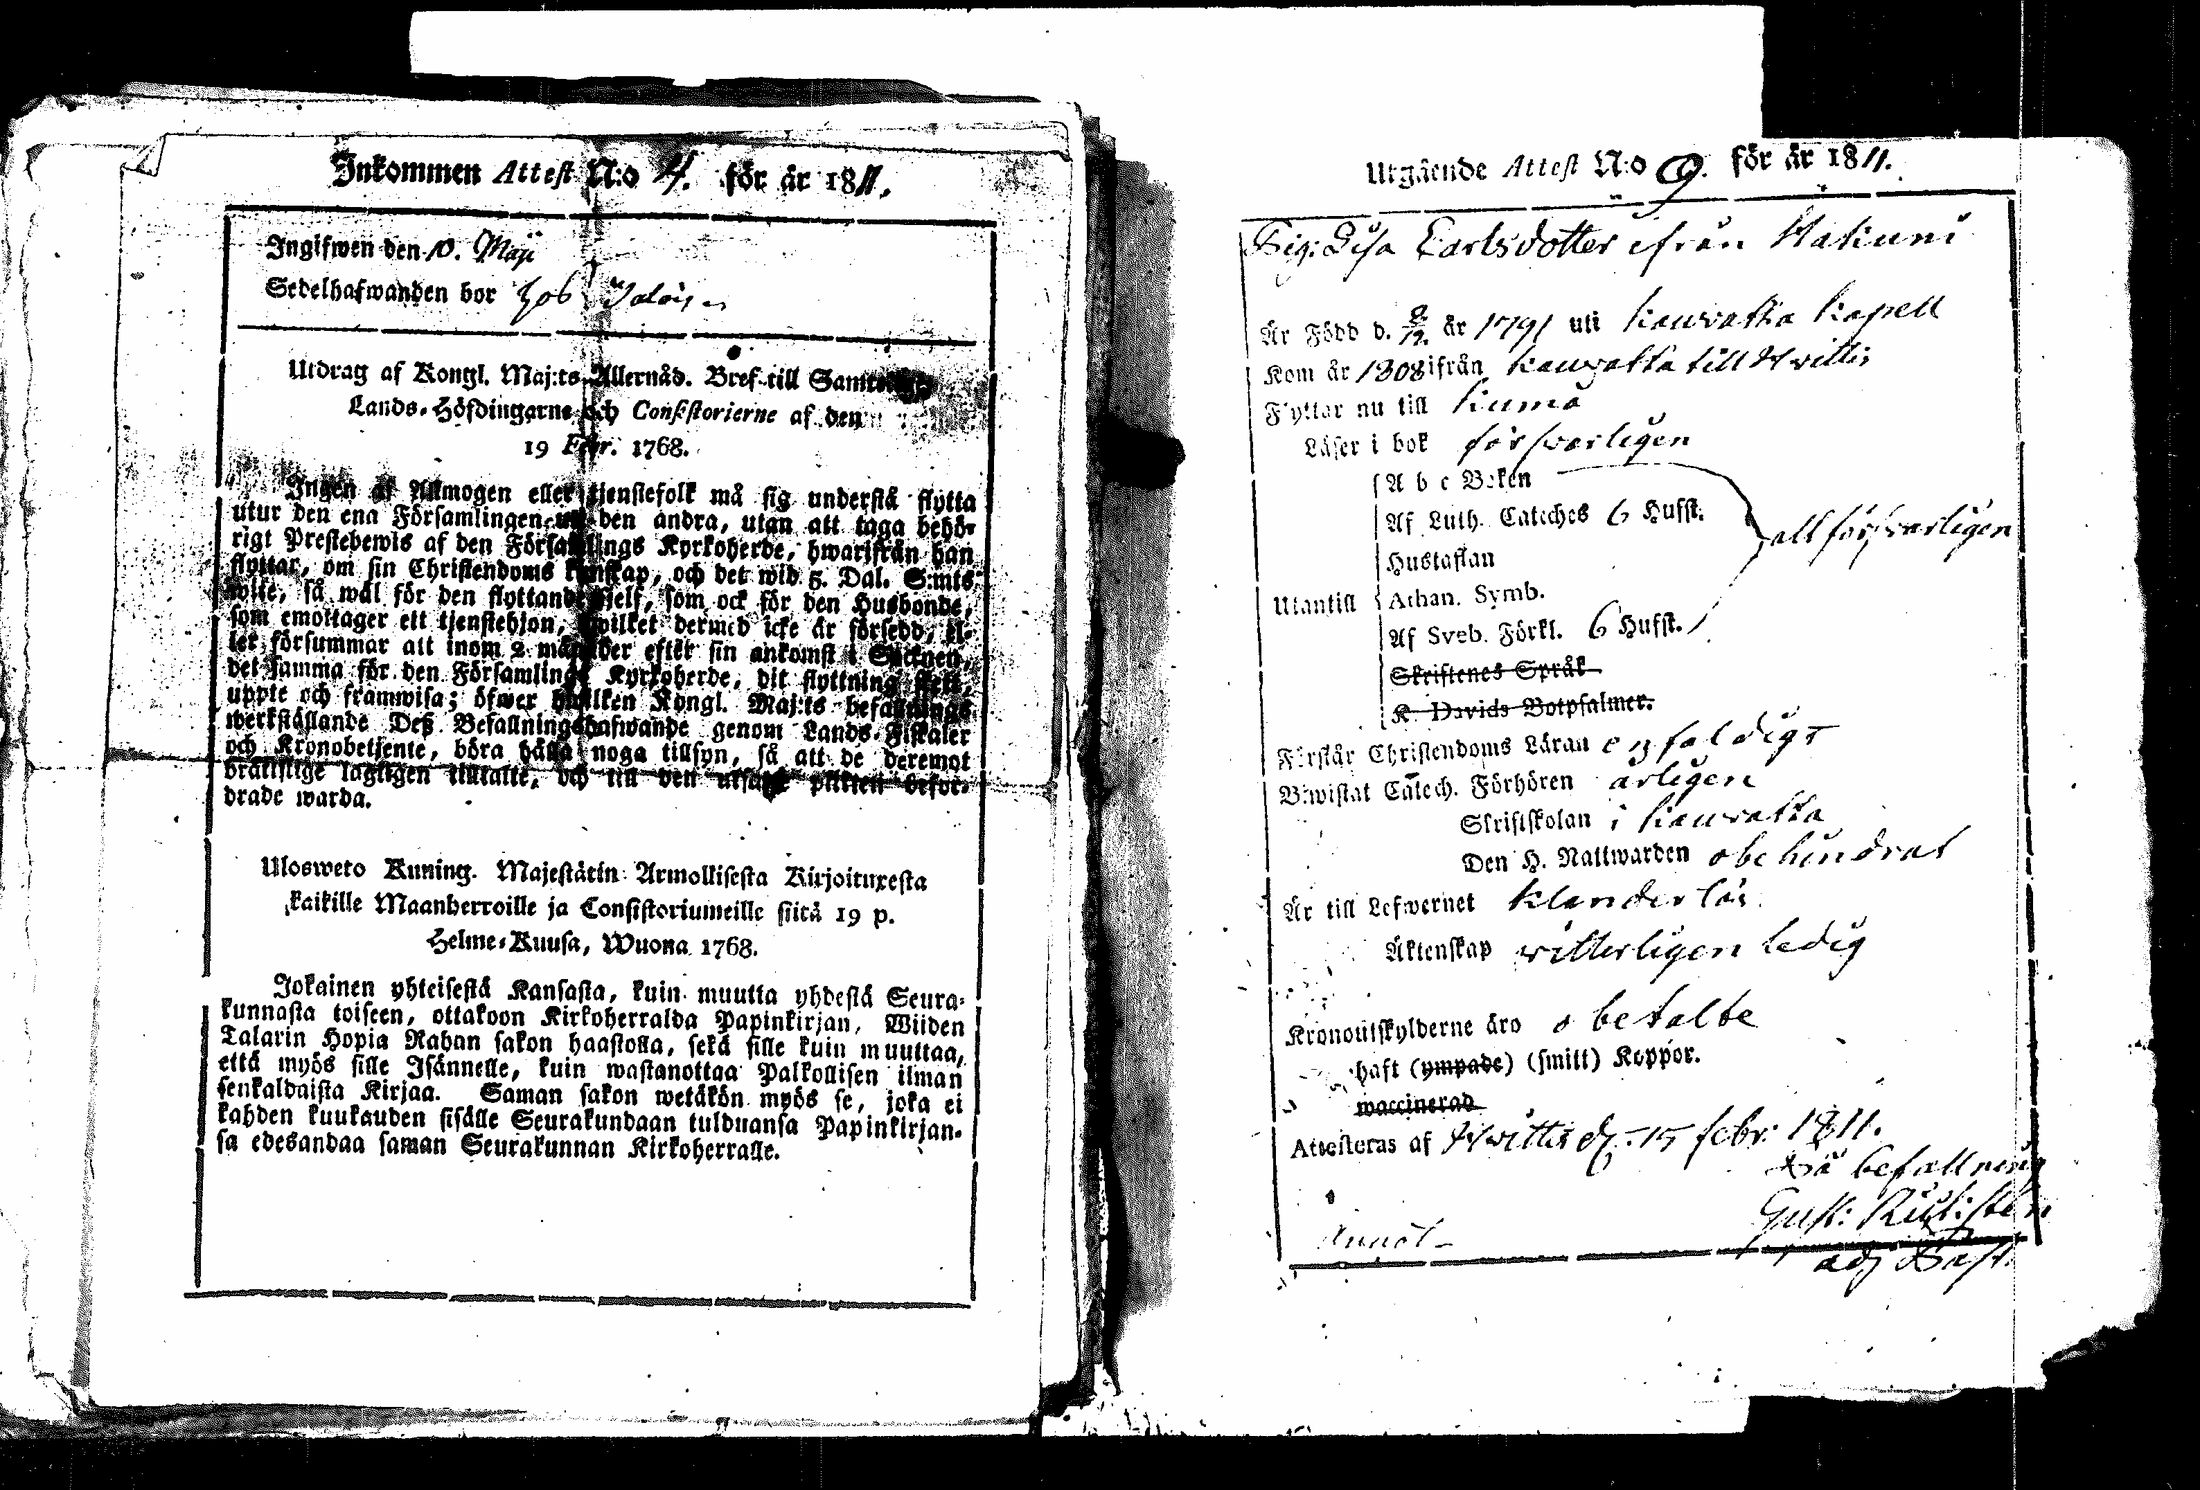 Inkommen Attest N:o 4. för år 1811.
Ingifwen den 10. Maji
Sedelhafwanden bor hos
Utdrag af Kongl. Maj:ts Allernåd. Bref till Samtelige
Lands-Höfdingarne och Consistorierne af den
19 Febr. 1768.
Ingen af Allmogen eller tjenstefolk må sig understå flytta
utur den ena Församlingen uti den andra, utan att taga behö-
rigt Prestebewis af den Församlings Kyrkoherde, hwarifrån han
flyttar, om sin Christendoms kunskap, och det wid 5. Dal. S:mts
wite, så wäl för den flyttande sjelf, som ock för den Husbonde,
som emottager ett tjenstehjon, hwilket dermed icke är försedd, el-
ler försummar att inom 2 månader efter sin ankomst i Socknen,
det samma för den Församlings Kyrkoherde, dit flyttning skett,
uppte och framwisa; öfwer hwilken Kongl. Maj:ts befallnings
werkställande Deß Befallningshafwande genom Lands-Fiskaler
och Kronobetjente, böra hålla noga tillsyn, så att de deremot
bräntslige lagligen tilltalte, och till den utsatte plikten befor-
drade warda.
Ulosweto Kuning. Majestätin Armollisesta Kirjoituxesta
kaikille Maanherroille ja Consistoriumeille siitä 19 p.
Helme-Kuusa, Wuona 1768.
Jokainen yhteisestä Kansasta, kuin muutta yhdestä Seura-
kunnasta toiseen, ottakoon Kirkoherralda Papinkirjan, Wiiden
Talarin Hopia Rahan sakon haastolla, sekä sille kuin muuttaa,
että myös sille Isännelle, kuin wastanottaa Palkollisen ilman
senkaldaista Kirjaa. Saman sakon wetäkön myös se, joka ei
kahden kuukauden sisälle Seurakundaan tulduansa Papinkirjan-
sa edesandaa saman Seurakunnan Kirkoherralle.
Utgående Attest N:o 9. för år 1811.
Pig. Lisa Carlsdotter ifrån Hakuni
Är Född d. 2/12. år 1791 uti Kauvatsa Kapell
Kom år 1808 ifrån Kauvatsa till Hvittis
Flyttar nu till Kumo
Läser i bok försvarligen
A b c Boken
Af Luth. Cateches 6 Hufst.
allt försvarligen
Hustaflan
Utantill
Athan. Symb.
Af Sveb. Förkl. 6 Hufst.
Skriftenes Språk
K. Davids Botpsalmer.
Förstår Christendoms Läran enfaldigt
Biwistat Catech. Förhören årligen
Skriftskolan i Kauvatsa
Den H. Nattwarden obehindrat
Är till Lefwernet klanderlös
Äktenskap witterligen ledig
Kronoutskylderne äro obetalte
haft (ympade) (smitt) Koppor.
waccinerad
Attesteras af Hvittis d. 15 febr. 1811.
På befallning
Gust:
adj Past.
Annot